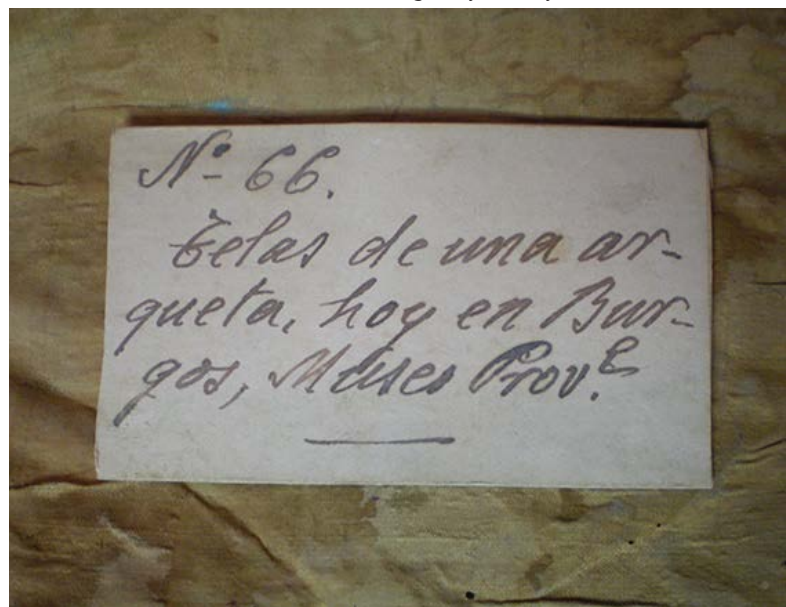 Nº 66.
Telas de una ar-
queta, hoy en Bur-
gos, Museo Prov.l